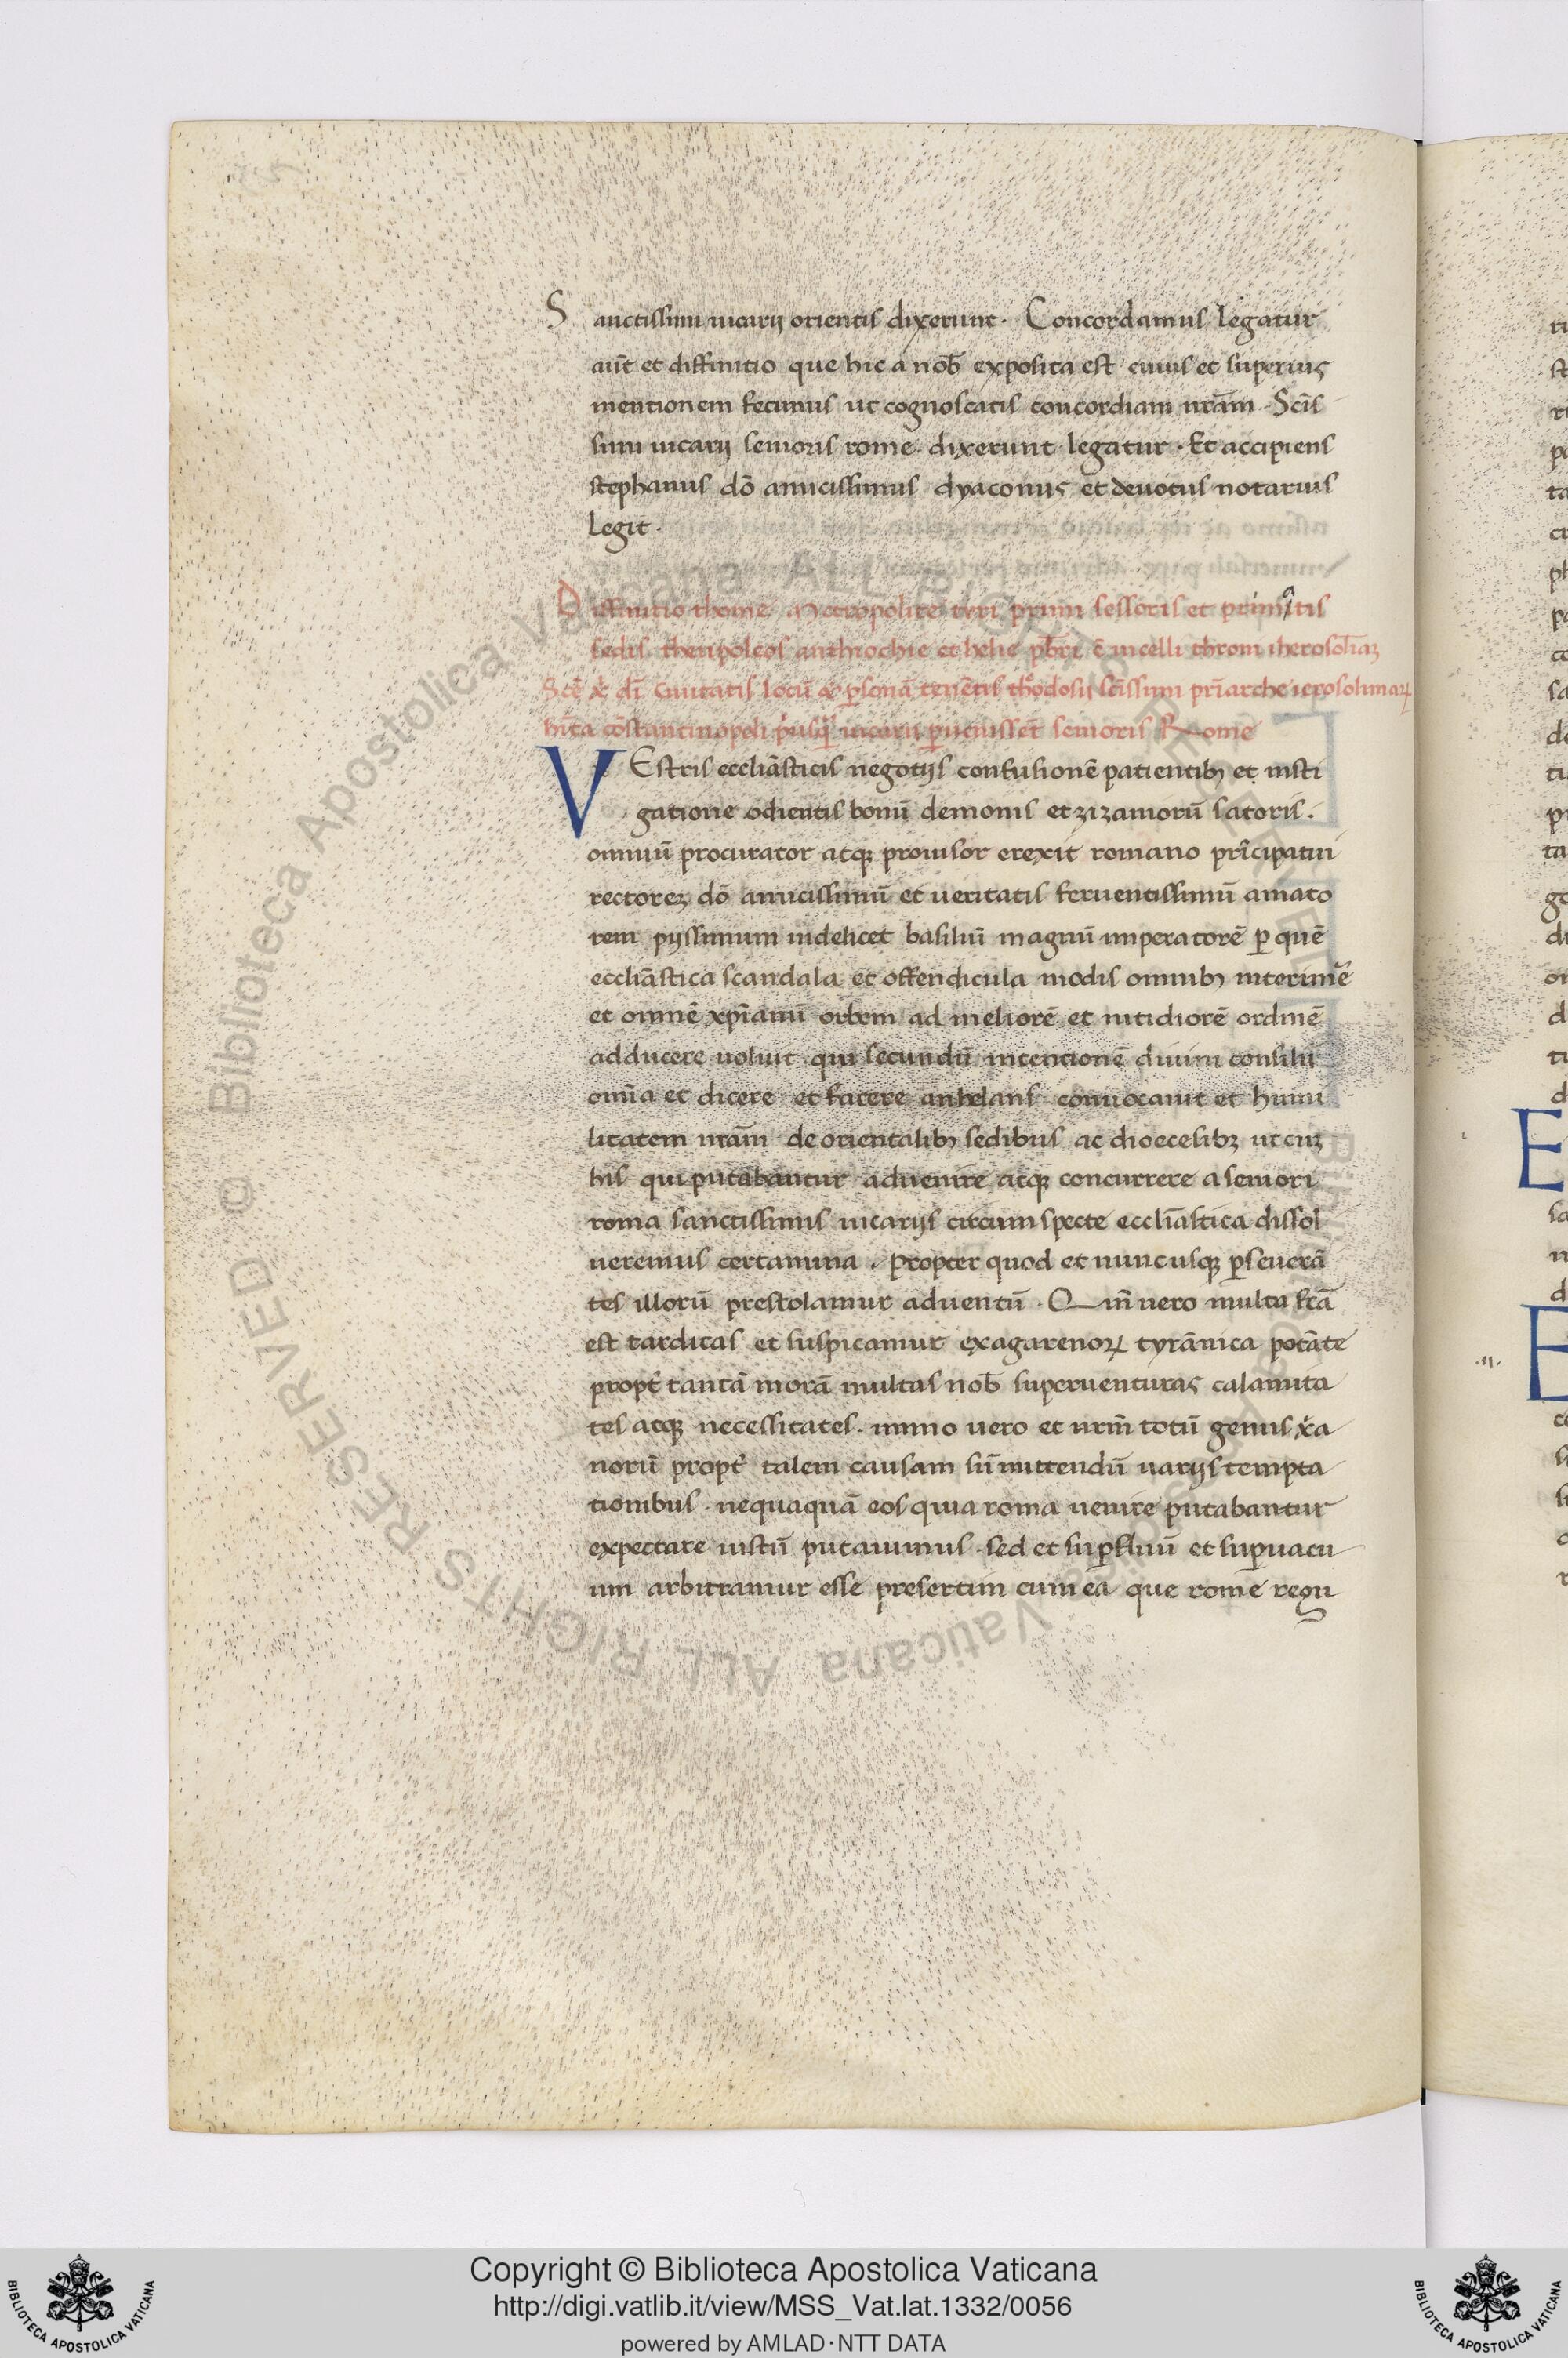 Sanctissimi uicarij orientis dixerunt. Concordamus legatur
aūt et diffinitio que hic a nob̄ exposita est cuius et superius
mentionem fecimus ut cognoscatis concordiam nr̄am. Scīs
simi uicarij senioris rome dixerunt legatur. Et accipiens
stephanus dō amicissimus dyaconus et deuotus notarius
legit.
Diffinitio thome Metropolite tyri primi sessoris et primatis
sedis theupoleos anthiochie et helie pb̄ri
Scē x̄ dī Ciuitatis locū &
senioris Rome
VEstris eccliāsticis negotijs confusionē patientibꝫ et insti
gatione odientis bonū demonis et zizaniorū satoris.
omniū procurator atqꝫ prouisor erexit romano prīcipatui
rectoreꝫ dō amicissimū et ueritatis feruentissimū amato
rem pyssimum uidelicet basiliū magnū imperatorē ꝑ quē
eccliāstica scandala et offendicula modis omnibꝫ interimē
et omnē xp̄ianū orbem ad meliorē et nitidiorē ordinē
adducere uoluit qui secundū intentionē diuini consilii
omīa et dicere et facere anhelans conuocauit et humi
litatem nr̄am de orientalibꝫ sedibus ac dioecesibꝫ ut cuꝫ
his qui putabantur aduenire atqꝫ concurrere a seniori
roma sanctissimis uicarijs circumspecte eccliāstica dissol
ueremus certamina. Propter quod et nunc usqꝫ ꝑseuerā
tes illorū prestolamur aduentū. Qm̄ uero multa fcā
est tarditas et suspicamur exagarenoꝝ tyrānica potāte
propt̄ tantā morā multas nob̄ superuenturas calamita
tes atqꝫ necessitates. immo uero et nrm̄ totū genus x̄a
norū propt̄ talem causam sūmittendū uarijs tempta
tionibus. nequaquā eos qui a roma uenire putabantur
expectare iustū putauimus. sed et suꝑfluū et suꝑuacu
um arbitramur esse presertim cum ea que rome regu
Copyright © Biblioteca Apostolica Vaticana
http://digi.vatlib.it/view/MSS_Vat.lat.1332/0056
powered by AMLAD·NTT DATA